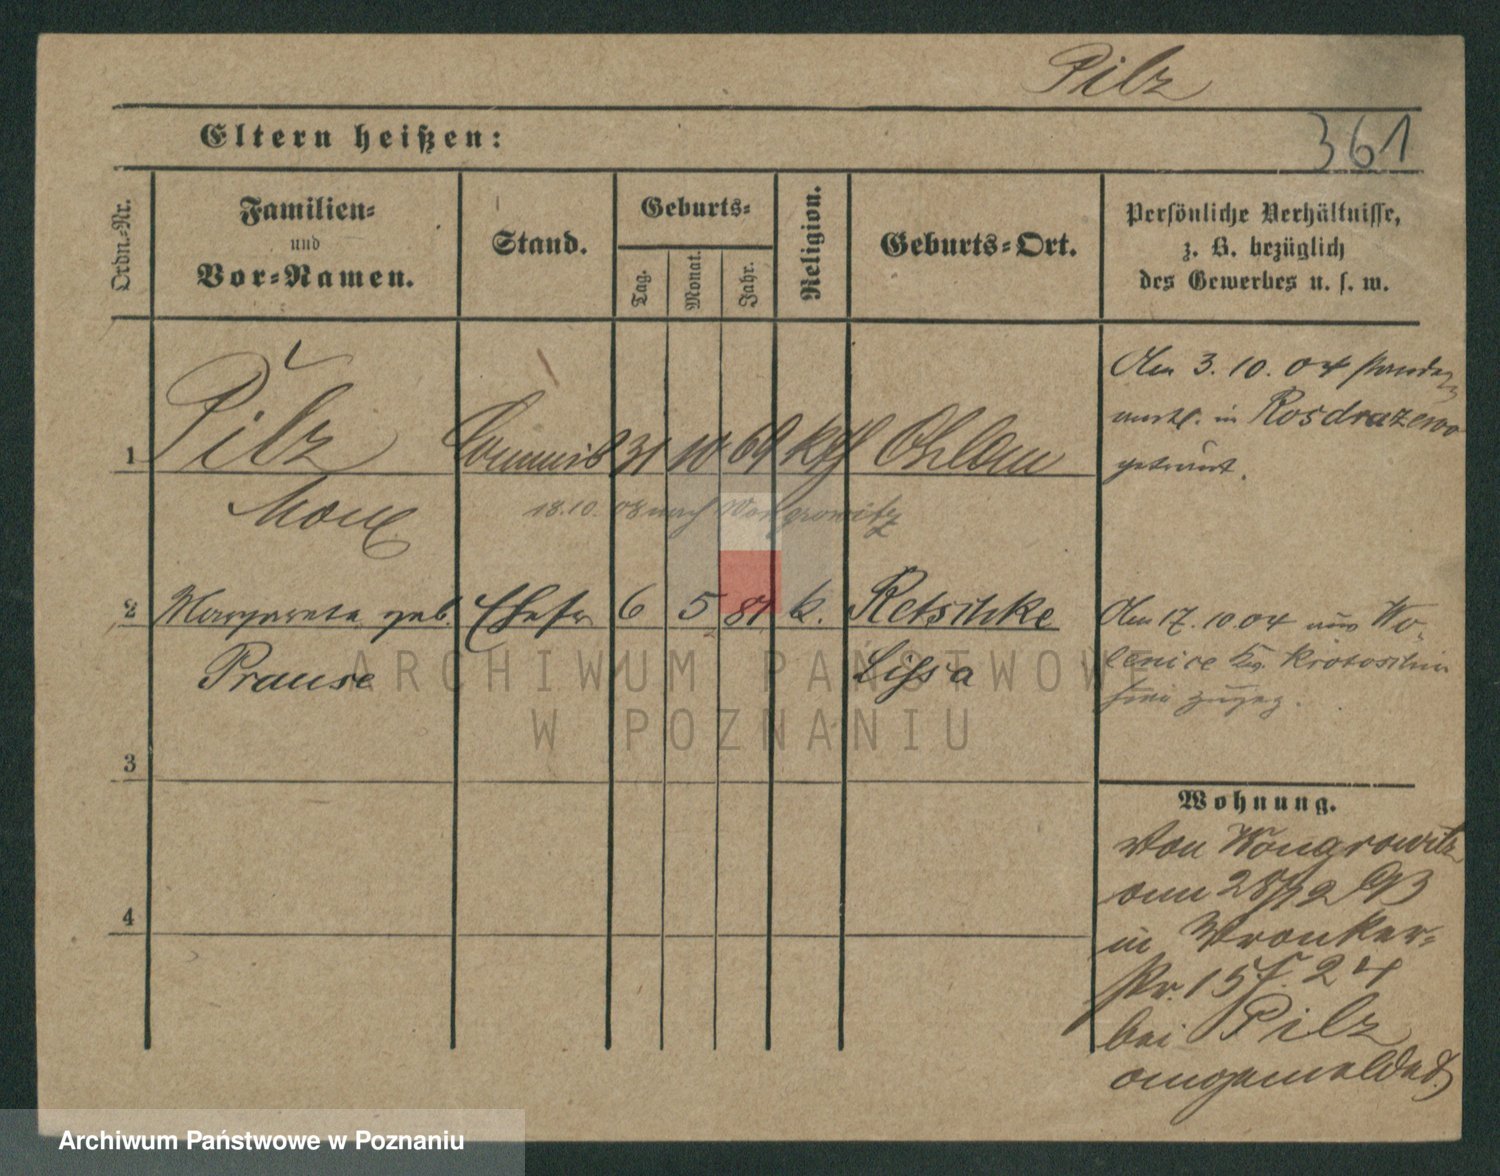 Pilz
Eltern heißen:
361
Ordn.-Nr.
Familien-
und
Vor-Namen.
Stand.
Geburts-
Tag.
Monat.
Jahr.
Religion.
Geburts-Ort.
Persönliche Verhältnisse,
z. B. bezüglich
des Gewerbes u. s. w.
1 Pilz Commis 31 10 69 kth Ohlau
Max
18.10.08 nach Wongrowitz
Am 3.10.04 standes
amtl. in Rosdrazewo
getraut.
2 Margareta geb. Ehefr 6 5 81 k. Retschke
Prause Lissa
Am 17.10.04 aus Wo-
lenice Krotoschin
hier zugez.
3
4
Wohnung.
Von Wongrowitz
am 28/12 93
in Wronker-
str. 15 f. 24
bei Pilz
angemeldet
ARCHIWUM PAŃSTWOWE
W POZNANIU
Archiwum Państwowe w Poznaniu